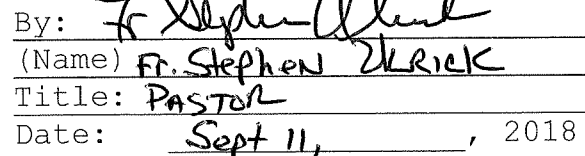 By: Fr Stephen
(Name) Fr. Stephen Ukrick
Title: PASTOR
Date: Sept 11, , 2018